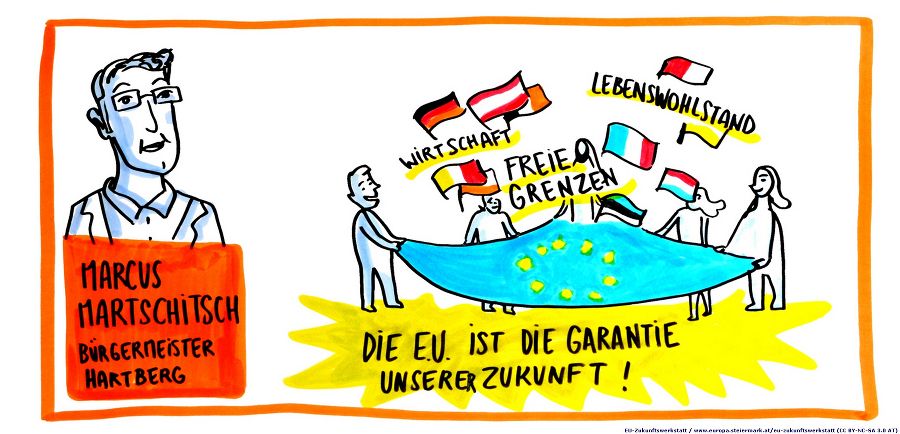 MARCUS
MARTSCHITSCH
BÜRGERMEISTER
HARTBERG
WIRTSCHAFT
FREIE
GRENZEN
LEBENSWOHLSTAND
DIE E.U. IST DIE GARANTIE
UNSERER ZUKUNFT!
EU-Zukunftswerkstatt / www.europa.steiermark.at/eu-zukunftswerkstatt (CC BY-NC-SA 3.0 AT)